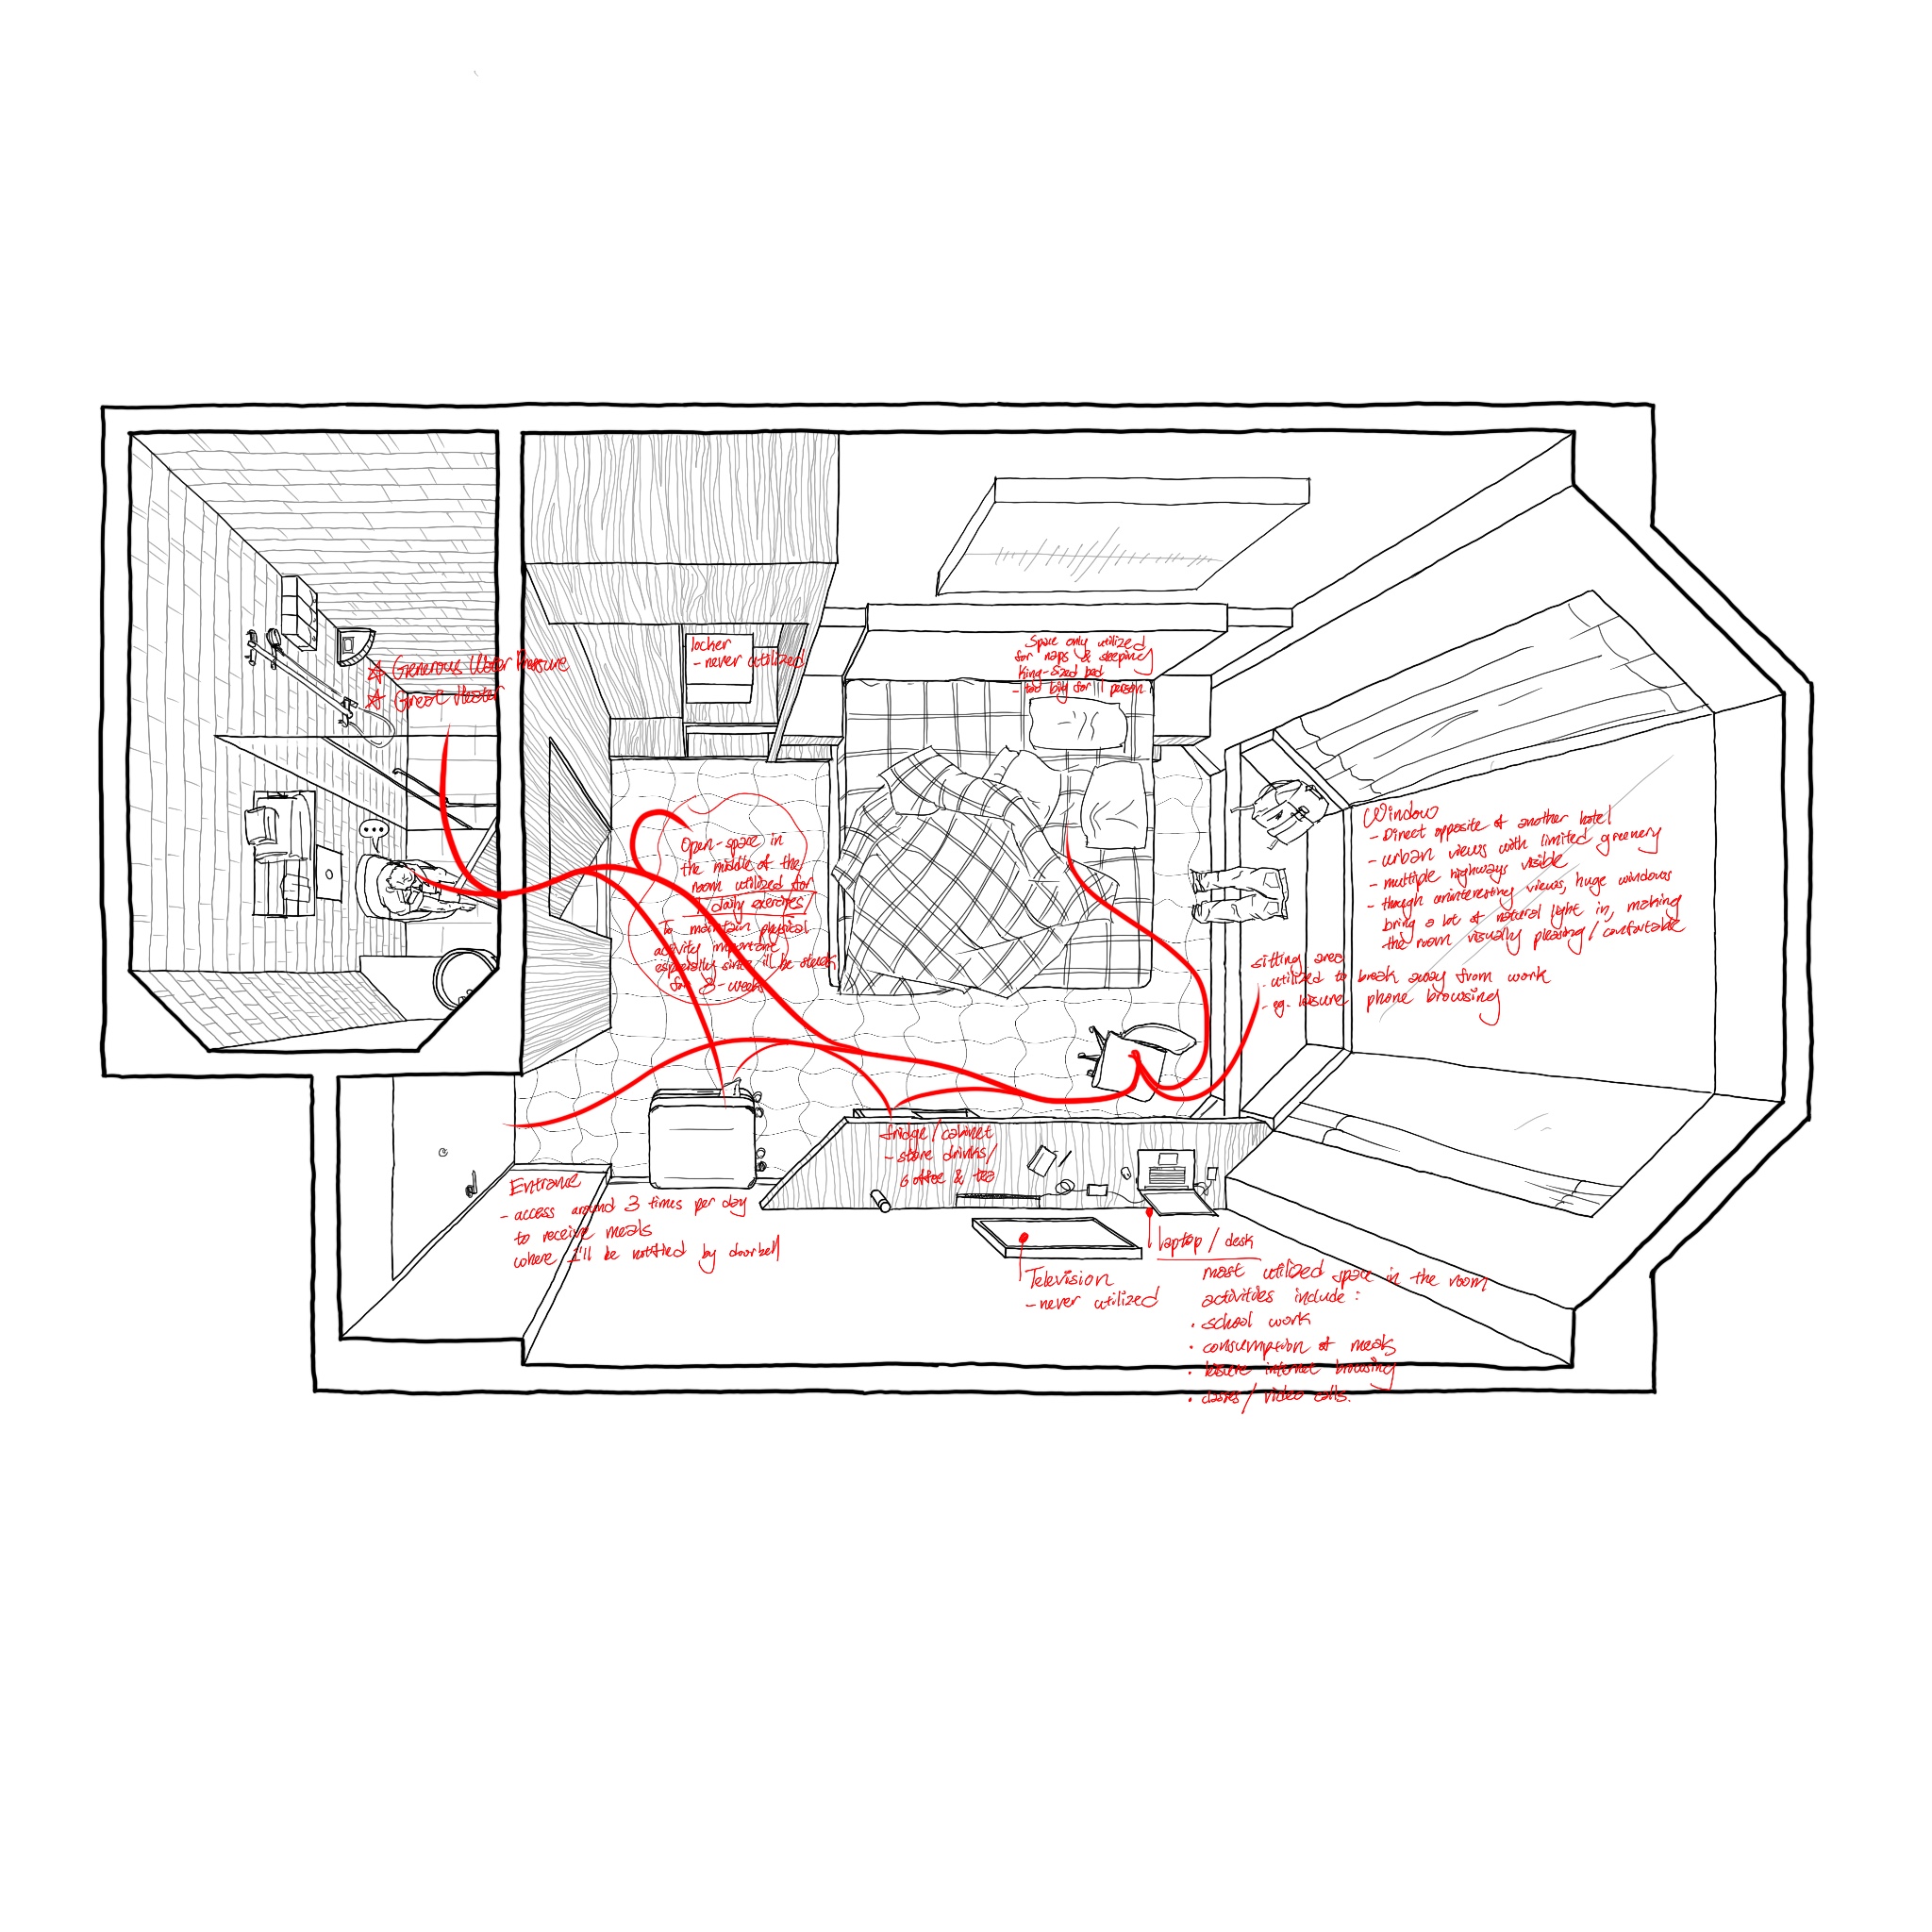 ☆ Generous Water Pressure
☆ Great Heater
locker
- never utilized
Space only utilized
for naps & sleeping
King-sized bed
- too big for 1 person
Open-space in
the middle of the
room utilized for
daily exercises
To maintain physical
activity important
especially since i'll be stuck
for 3-weeks
Window
- Direct opposite of another hotel
- urban views with limited greenery
- multiple highways visible
- though uninteresting views, huge windows
bring a lot of natural light in, making
the room visually pleasing / comfortable
sitting area
- utilized to break away from work
- eg. leisure phone browsing
fridge / cabinet
- store drinks /
coffee & tea
Entrance
- access around 3 times per day
to receive meals
where I'll be notified by doorbell
Television
- never utilized
laptop / desk
most utilized space in the room
activities include :
• school work
• consumption of meals
• leisure internet browsing
• classes / video calls.